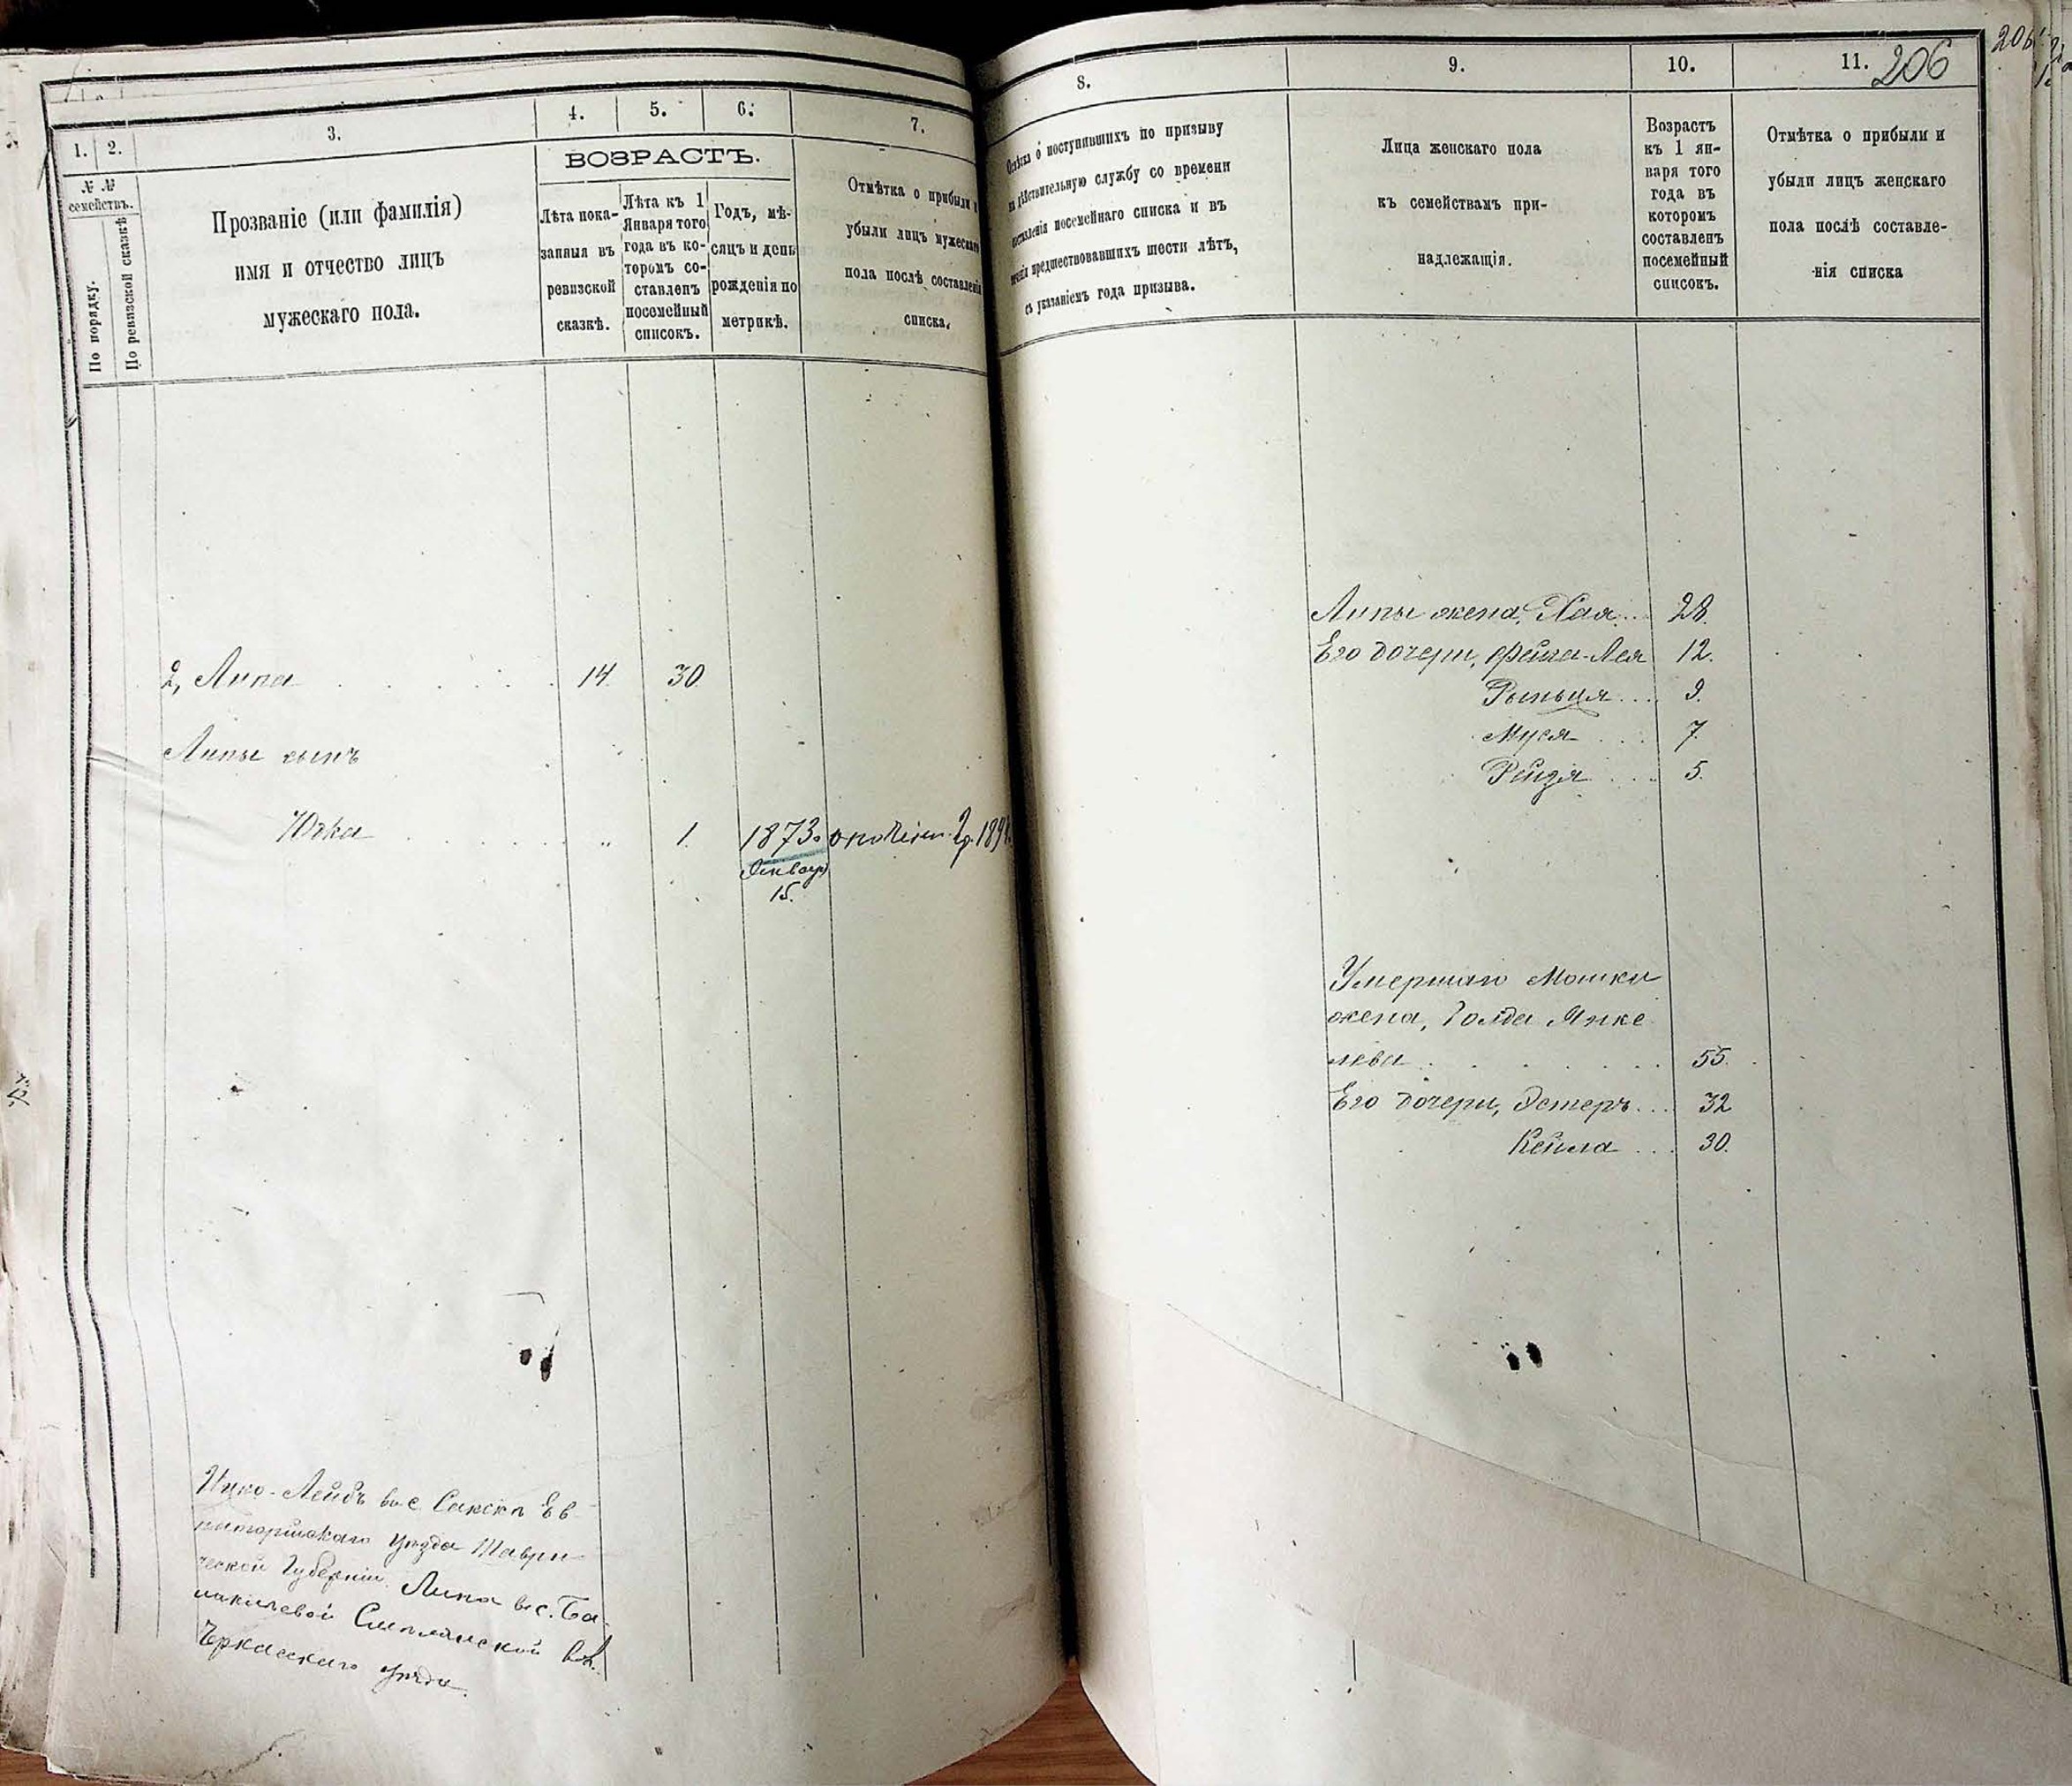 1. 2. 3. 4. 5. 6. 7.
№ №
семействъ.
По порядку.
По ревизской сказкѣ
Прозваніе (или фамилія)
имя и отчество лицъ
мужескаго пола.
ВОЗРАСТЪ.
Лѣта пока-
занныя въ
ревизской
сказкѣ.
Лѣта къ 1
Января того
года въ ко-
торомъ со-
ставленъ
посемейный
списокъ.
Годъ, мѣ-
сяцъ и день
рожденія по
метрикѣ.
Отмѣтка о прибыли и
убыли лицъ мужескаго
пола послѣ составленія
списка.
2, Липа 14. 30
Липы сынъ
Юдка " 1. 1873.
Января
15.
Ицко-Лейбъ въ с. Сакскъ Ев-
паторійскаго уѣзда Таври-
ческой Губерніи. Липа въ с. Ба-
Смѣлянской вол.
Черкасскаго уѣзда.
8. 9. 10. 11. 206
206
о поступившихъ по призыву
дѣйствительную службу со времени
составленія посемейнаго списка и въ
предшествовавшихъ шести лѣтъ,
съ указаніемъ года призыва.
Лица женскаго пола
къ семействамъ при-
надлежащія.
Возрастъ
къ 1 ян-
варя того
года въ
которомъ
составленъ
посемейный
списокъ.
Отмѣтка о прибыли и
убыли лицъ женскаго
пола послѣ составле-
нія списка
Липы жена, Хая... 28.
Его дочери, Фейга-Лея 12.
Рыньця... 9.
Муся... 7.
Рейзя... 5.
Умершаго Мошки
жена, Голда Янке
лева 55.
Его дочери, Эстеръ... 32
Кейла... 30.